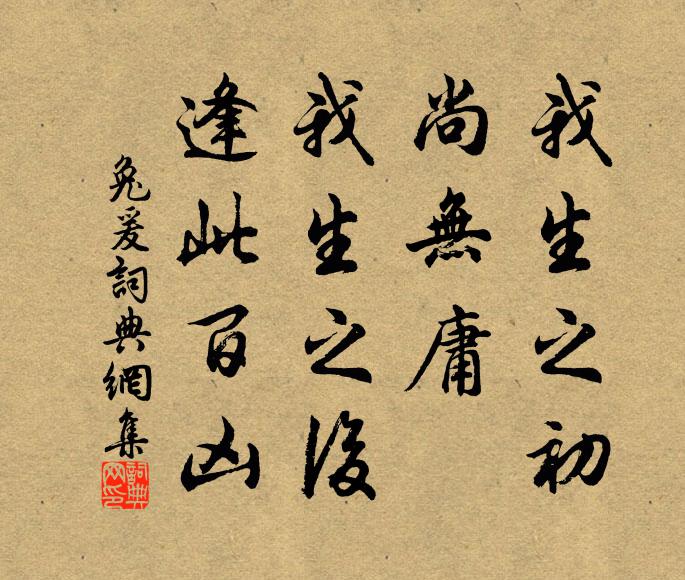 我生之初
尚無庸
我生之後
逢此百凶
兔爰詞典網集
詞典网印